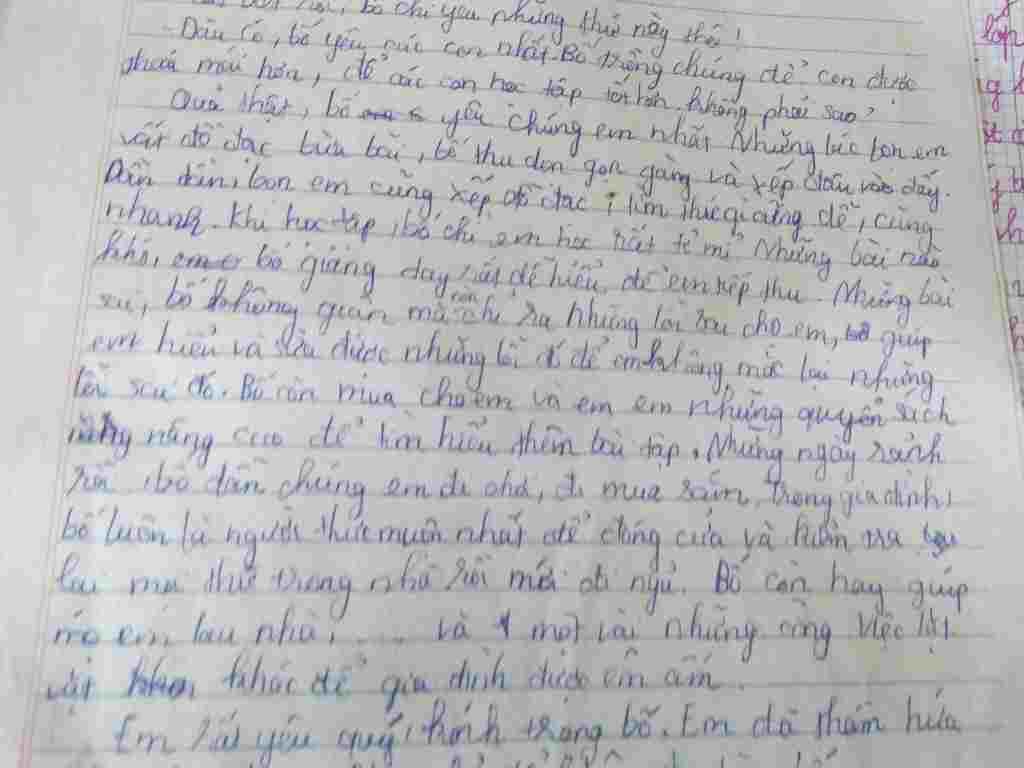 bố chỉ yêu những thứ này thôi!
- Đâu có, bố yêu các con nhất. Bố trồng chúng để con được
thoải mái hơn, để các con học tập tốt hơn không phải sao?
Quả thật, bố yêu chúng em nhất. Những lúc bọn em
vứt đồ đạc bừa bãi, bố thu dọn gọn gàng và xếp đâu vào đấy.
Dần dần, bọn em cũng xếp đồ đạc, tìm thứ gì cũng dễ, cũng
nhanh. Khi học tập, bố chỉ em học rất tỉ mỉ. Những bài nào
khó, bố giảng dạy rất dễ hiểu để em tiếp thu. Những bài
sai, bố không quắn mà còn chỉ ra những lỗi sai cho em, giúp
em hiểu và sửa được những lỗi đó để em không mắc lại những
lỗi sai đó. Bố còn mua cho em và em em những quyển sách
nâng cao để tìm hiểu thêm bài tập. Những ngày rảnh
rỗi, bố dẫn chúng em đi chơi, đi mua sắm. Trong gia đình,
bố luôn là người thức muộn nhất để đóng cửa và tuần tra
lại mọi thứ trong nhà rồi mới đi ngủ. Bố còn hay giúp
mẹ em lau nhà, .... và một vài những công việc lặt
vặt khác để gia đình được êm ấm.
Em rất yêu quý, kính trọng bố. Em đã thầm hứa